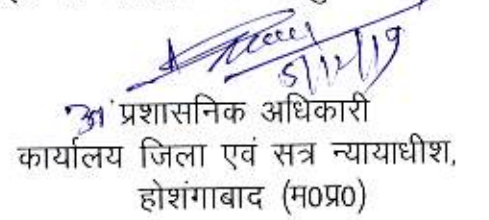 5/12/19
अ प्रशासनिक अधिकारी
कार्यालय जिला एवं सत्र न्यायाधीश,
होशंगाबाद (म0प्र0)